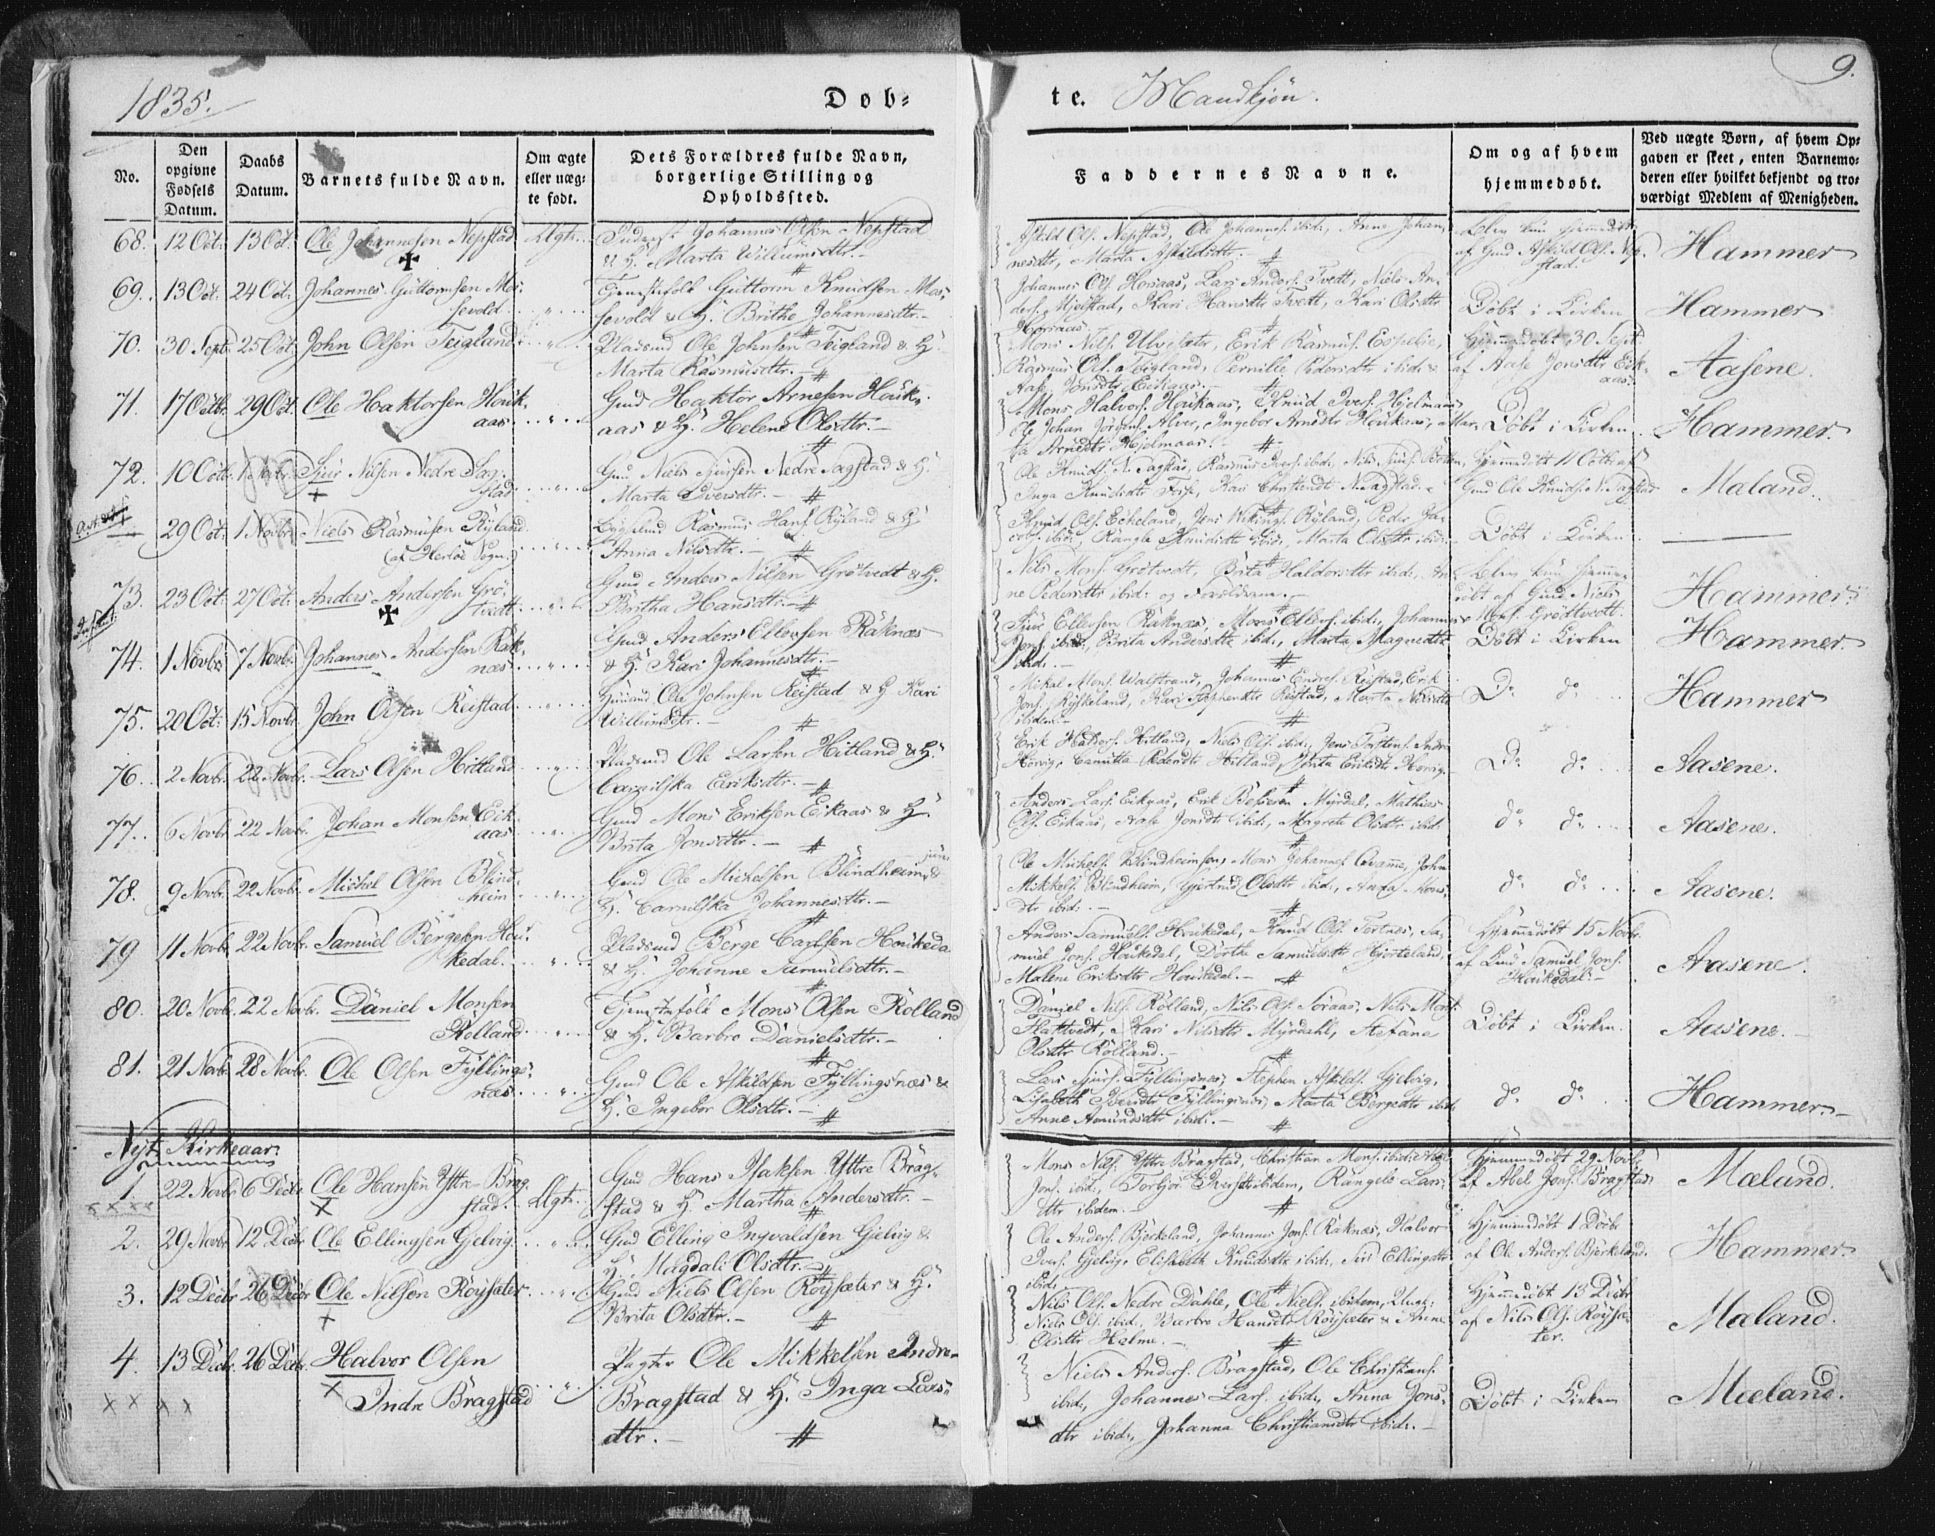 1835.
Døb-
te. Mandkjön.
9.
No.
Den
opgivne
Fødsels
Datum.
Daabs
Datum.
Barnets fulde Navn.
Om ægte
eller uæg-
te født.
Dets Forældres fulde Navn,
borgerlige Stilling og
Opholdssted.
Faddernes Navne.
Om og af hvem
hjemmedøbt.
Ved uægte Børn, af hvem Op-
gaven er skeet, enten Barnemo-
deren eller hvilket bekjendt og tro-
værdigt Medlem af Menigheden.
68. 12 Oct. 13 Oct. Ole Johannesen Nepstad Ægte. Johannes Olsen Nepstad
& H. Marta Willumsdtr.
Askild Ols. Nepstad, Ole Johannes. ibid:, Anne Johan-
nesdtr, Marta Askildsdtr.
af Gmd Askild Ols. Nep-
stad.
Hammer
69. 13 Oct. 24 Oct. Johannes Guttormsen Mos-
sevold
Guttorm Knudsen Mos-
sevold & H. Brithe Johannesdtr.
Johannes Ols. Horsaas, Lars Anders. Tvett, Niels An-
ders. Mjelstad, Kari Hansdtr Tvett, Kari Olsdtr
Horsaas.
Döbt i Kirken
Hammer
70. 30 Sept. 25 Oct. John Olsen Teigland
Pladsmd Ole Johnsen Teigland & H.
Marta Rasmusdtr.
Mons Nils. Ulvesæter, Erik Rasmus. Espelie,
Rasmus Ols. Teigland, Pernille Pedersdtr ibid: &
Aase Jonsdtr Eickaas.
Hjemmedöbt 30 Sept.
af Aase Jonsdtr Eik-
aas.
Aasene.
71. 17 Octbr. 29 Oct. Ole Haktorsen Houk-
aas
Gmd Haktor Arnesen Houk-
aas & H. Helene Olsdtr.
Mons Halvors. Houkaas, Knud Ivers. Hjelmaas,
Ole Johan Jörgens. Alver, Ingebor Arnesdtr Houkaas, Mar-
ta Arnesdtr Hjelmaas.
Döbt i Kirken
Hammer.
72. 10 Octbr. 1 Novbr. Sjur Nilsen Nedre Sag-
stad
Gmd Niels Sjursen Nedre Sagstad & H.
Marta Iversdtr.
Ole Knuds. N. Sagstad, Rasmus Ivers. ibid:, Nils
Inga Knudsdtr
af
Gmd Ole Knuds. N. Sagstad
Mæland.
29 Oct. 1 Novbr. Niels Rasmusen Ryland
(af Herlöe Sogn.)
Rasmus Hans. Ryland & H.
Anna Nilsdtr.
Knud Ols. Eckeland, Jens Ryland, Peder Ja-
cobs. ibid:, Rangle Knudsdtr ibid:, Marta Olsdtr ibid.
Döbt i Kirken
73. 23 Oct. 27 Oct. Anders Andersen Grö-
tvett
Gmd Anders Nilsen Grötvedt & H.
Britha Hansdtr.
Nils Mons. Grötvedt, Brita Haldorsdtr ibid:, An-
ne Pedersdtr ibid: og Forældrene.
Blev kun hjemme-
döbt af Gmd Niels
Mons. Gröttvett.
Hammer.
74. 1 Novbr 7 Novbr. Johannes Andersen Rak-
næs
Gmd Anders Ellevsen Raknæs
& H. Kari Johannesdtr.
Ellevsen Raknæs, Mons Ellevs. ibid:, Johannes
Jons. ibid:, Brita Andersdtr ibid:, Marta Magnedtr
ibid:.
Döbt i Kirken
Hammer.
75. 20 Oct. 15 Novbr. John Olsen Reistad
Ole Johnsen Reistad & H. Kari
Willumsdtr.
Mikal Mons. Walstrand, Johannes Endres. Reistad, Erik
Jons. Ryskeland, Kari Stephensdtr Reistad, Marta Nilsdtr
ibidem.
Do do
Hammer
76. 2 Novbr. 22 Novbr. Lars Olsen Hitland
Pladsmd Ole Larsen Hitland & H.
Eriksdtr.
Erik Haldors. Hitland, Niels Ols. ibid:, Jens Torstens. Indre
Horvig, Hitland, Brita Eriksdtr Horvig.
Do do
Aasene.
77. 6 Novbr. 22 Novbr. Johan Monsen Eik-
aas
Gmd Mons Eriksen Eikaas & H.
Brita Jonsdtr.
Anders Lars. Eikaas, Erik Myrdal, Mathias
Ols. Eikaas, Aase Jonsdtr ibid:, Margrete Olsdtr ibid.
do do
Aasene.
78. 9 Novbr. 22 Novbr. Michel Olsen Blind-
heim
Gmd Ole Michelsen Blindheim &
H. Johannesdtr.
Ole Michels. Blindheim, Mons Johannes. John
Mikkels. Blindheim, Gjertrud Olsdtr ibid:, Anna Mons-
dtr ibid:.
do do
Aasene.
79 11 Novbr. 22 Novbr. Samuel Bergesen Hou-
kedal.
Pladsmd Berge Carlsen Houkedal
& H. Johanne Samuelsdtr.
Anders Samuels. Houkedal, Knud Ols. Totnæs, Sa-
muel Jons. Houkedal, Dorthe Samuelsdtr Hjorteland,
Malene Eriksdtr Houkedal.
Hjemmedöbt 15 Novbr.
af Gmd Samuel Jons.
Houkedal.
Aasene.
80. 20 Novbr. 22 Novbr. Daniel Monsen
Rölland
Mons Olsen Rölland
& H. Barbro Danielsdtr.
Daniel Nils. Rölland, Nils Ols. Soraas, Nils Mons.
Flattvedt, Kari Nilsdtr Myrdahl, Stefane
Olsdtr Rölland.
Döbt i Kirken
Aasene.
81. 21 Novbr. 28 Novbr. Ole Olsen Fyllings-
næs
Gmd Ole Askildsen Fyllingsnæs &
H. Ingebor Olsdtr.
Lars Sjurs. Fyllingsnæs, Stephen Askilds. Gjelvig,
Lisabeth Fyllingsnæs, Marta Börgesdtr ibid.
Anne Amundsdtr ibid:.
do do
Hammer.
Nyt Kirkeaar.
1. 22 Novbr. 6 Decbr. Ole Hansen Yttre Brag-
stad. Ægte.
Gmd Hans Isaksen Yttre Brag-
stad & H. Martha Andersdtr.
Mons Nils. Yttre Bragstad, Christian Mons. ibid:
Jons. ibid:, Torbjör Iversdtr ibidem, Rangele Lars-
dtr ibidem.
Hjemmedöbt 29 Novbr.
af Abel Jons. Bragstad.
Mæland.
2. 29 Novbr 12 Decbr Ole Ellingsen Gjelvig
Gmd Elling Ingvaldsen Gjelvig &
H. Magdali Olsdtr.
Ole Anders. Björkeland, Johannes Jons. Raknæs, Halvor
Ivers. Gjelvig, Elisabeth Knudsdtr ibid:, Siri Ellingsdtr
ibid:.
Hjemmedöbt 1 Decbr
af Ole Anders. Björkeland.
Hammer.
3. 12 Decbr 26 Decbr Ole Nilsen Röysæter
Gmd Niels Olsen Röysæter & H.
Brita Olsdtr.
Nils Ols. Nedre Dahle, Ole Niels. ibidem,
Nils Ols. ibid:, Barbro Hansdtr Röysæter & Anne
Olsdtr Helme.
Hjemmedöbt 13 Decbr
af Nils Ols. Röysæ-
ter.
Mæland.
4. 13 Decbr. 26 Decbr. Halvor Olsen
Indre Bragstad
Ole Mikkelsen Indre
Bragstad & H. Inga Lars-
dtr.
Niels Anders. Bragstad, Ole Christians.
ibid:, Johannes Lars. ibid:, Anna Jons-
dtr ibid:, Johanna Christiansdtr ibid:.
Döbt i Kirken
Mæland.